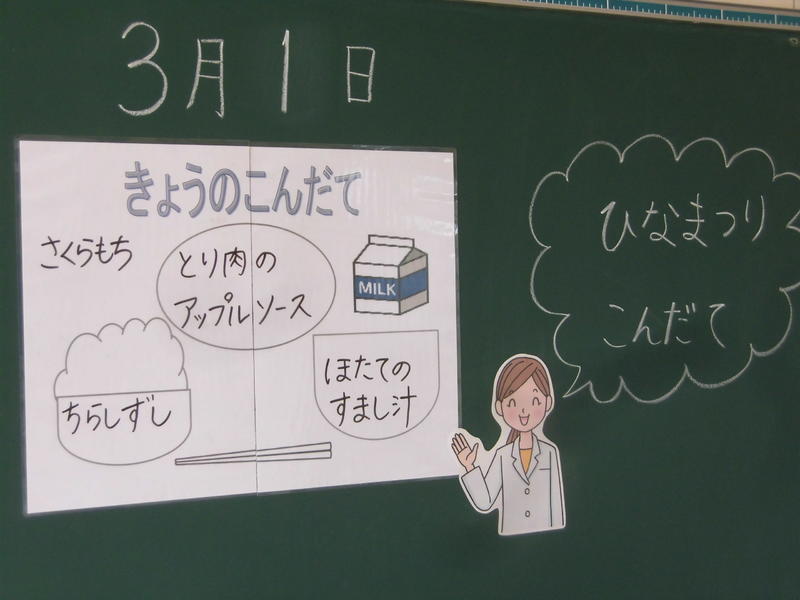 3月1日
きょうのこんだて
さくらもち
とり肉の
アップルソース
MILK
ちらしずし
ほたての
すまし汁
ひなまつり
こんだて